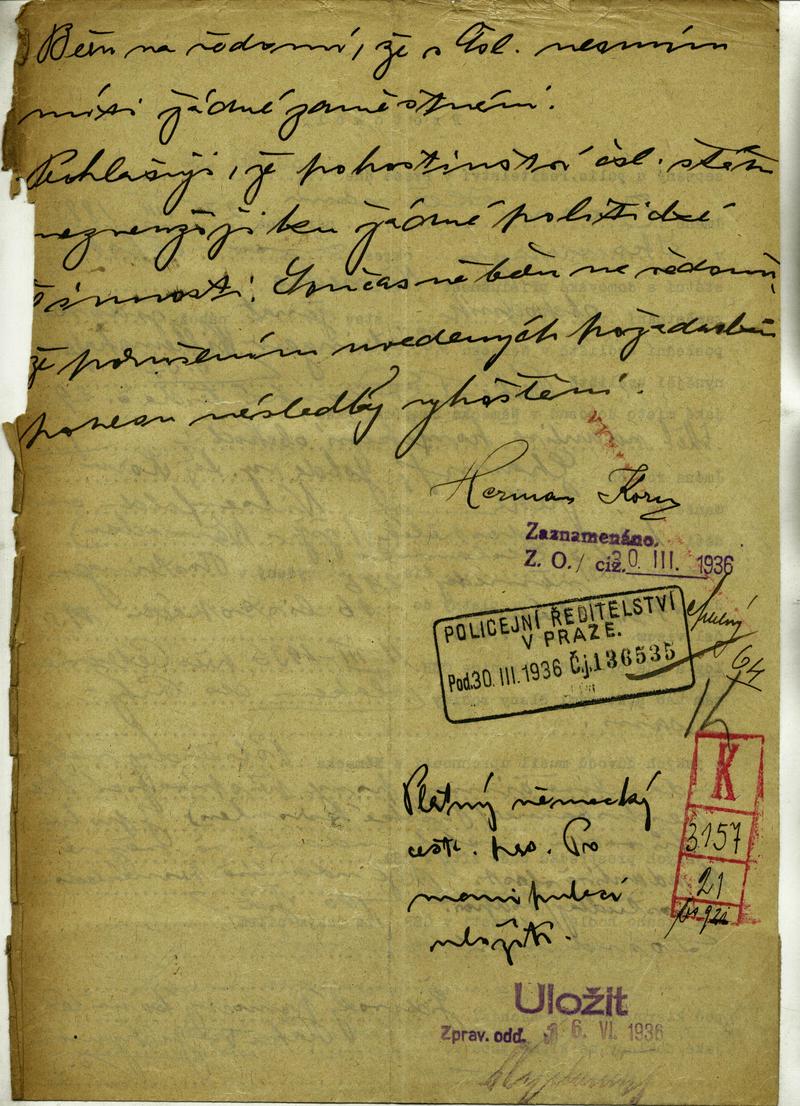 Béřu na vědomí, že v Čsl. nesmím
míti žádné zaměstnání.
Prohlašuji, že pohostinství čsl. státu
nezneužiji ku žádné politické
činnosti. Současně béřu na vědomí,
že porušením uvedených požadavků
ponesu následky vyhoštění.
Herman Korn
Zaznamenáno.
Z. O./ ciz. 30. III. 1936
POLICEJNÍ ŘEDITELSTVÍ
V PRAZE.
Pod. 30. III. 1936 Č.j. 136535
64
K
3157
21
Platný německý
cest. pas. Po
manipulaci
uložit.
Uložit
Zprav. odd. 6. VI. 1936